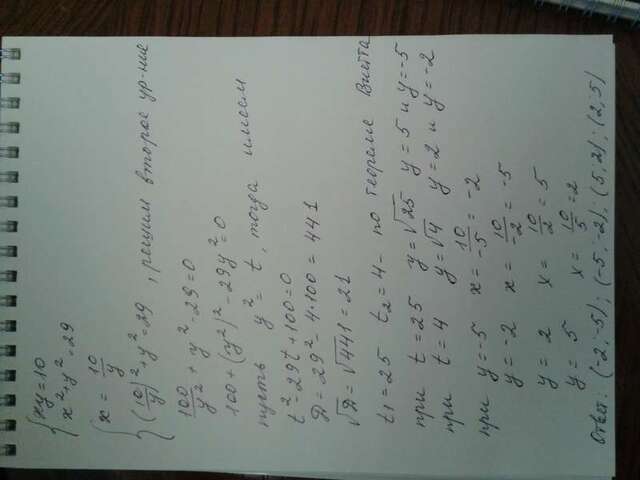 { xy = 10
x² + y² = 29
{ x = 10/y
(10/y)² + y² = 29, решим второе ур-ние
100/y² + y² - 29 = 0
100 + (y²)² - 29y² = 0
пусть y² = t, тогда имеем
t² - 29t + 100 = 0
Д = 29² - 4·100 = 441
√Д = √441 = 21
t₁ = 25 t₂ = 4 - по теореме Виетта
при t = 25 y = √25 y = 5 и y = -5
при t = 4 y = √4 y = 2 и y = -2
при y = -5 x = 10/-5 = -2
y = -2 x = 10/-2 = -5
y = 2 x = 10/2 = 5
y = 5 x = 10/5 = 2
Ответ: (-2; -5); (-5; -2); (5; 2); (2; 5)